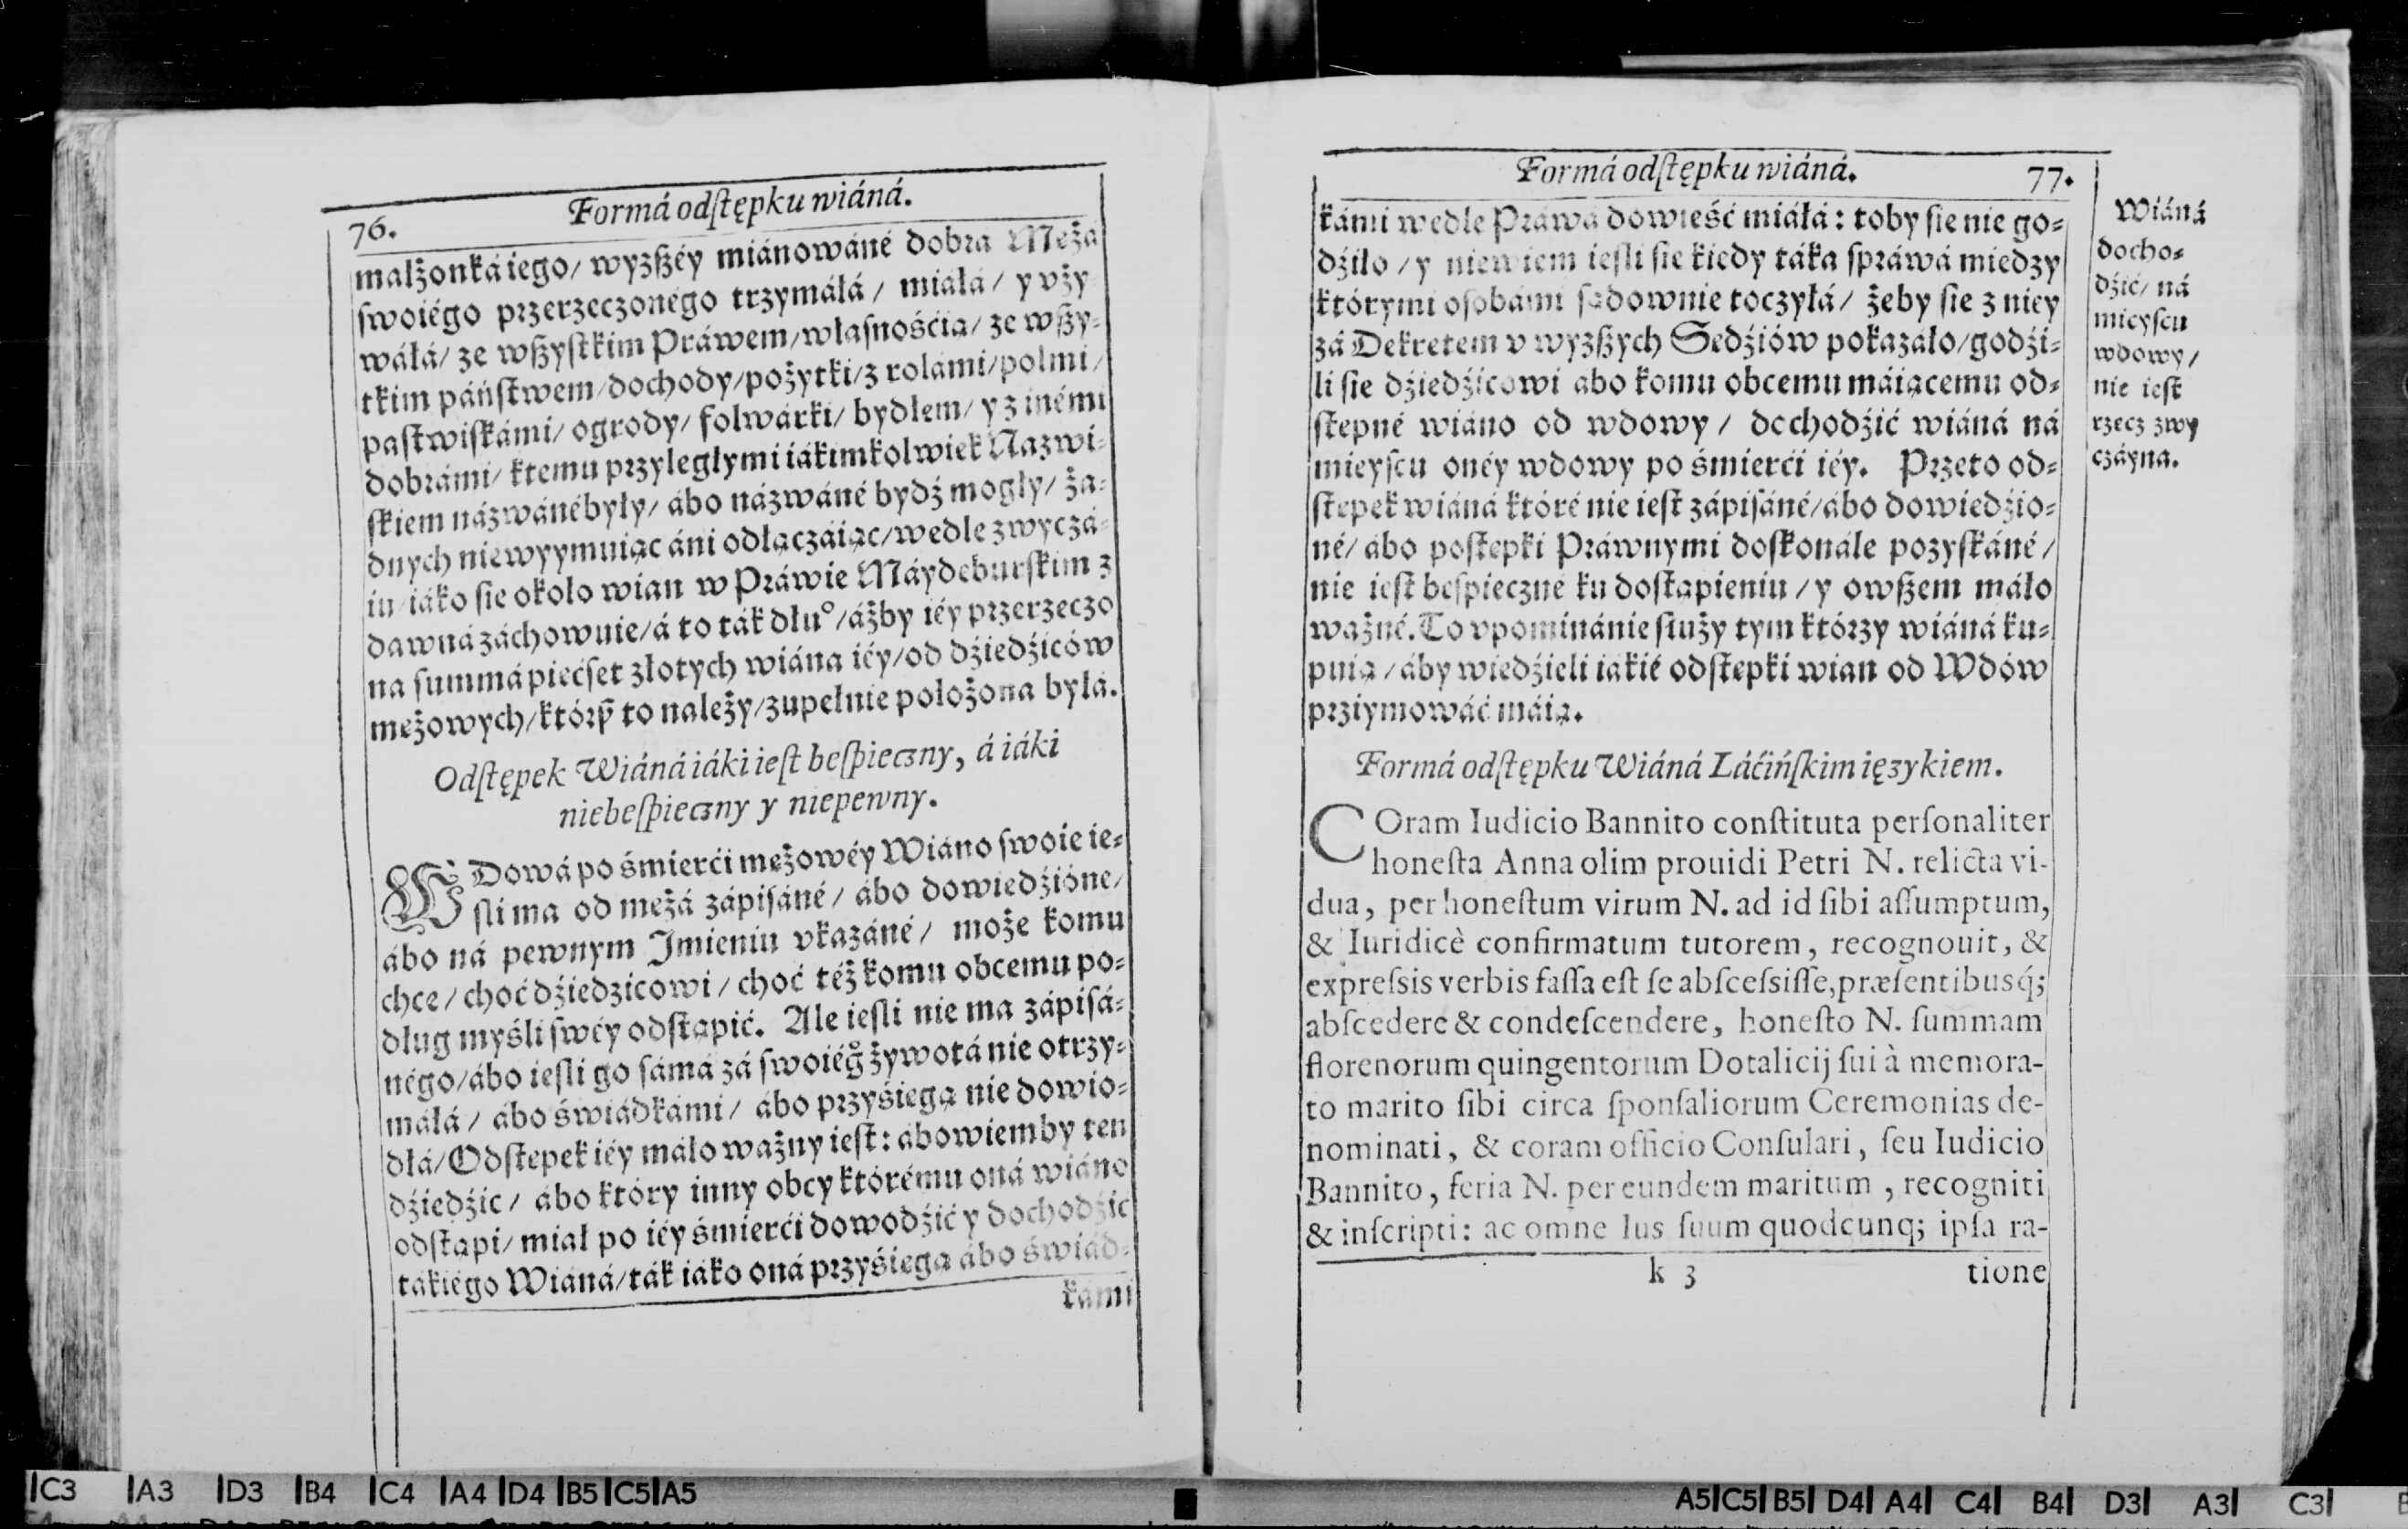 76. Formá odſtępku wiáná.
małżonká iego/ wyzßéy miánowáné dobra Mężá
ſwoiégo przerzeczonégo trzymáłá/ miáłá/ y vży
wáłá/ ze wßyſtkim Práwem/właſnośćią/ ze wßy-
tkim páńſtwem/dochody/pożytki/z rolámi/polmi/
paſtwiſkámi/ ogrody/ folwárki/ bydłem/ y z inémi
dobrámi/ ktemu przyległymi iákimkolwiek Nazwi-
ſkiem názwáné były/ ábo názwáné bydź mogły/ ża-
dnych niewyymuiąc áni odłączáiąc/wedle zwyczá-
iu/iáko ſie około wian w Práwie Máydeburſkim z
dawná záchowuie/á to ták dłuº/áżby iéy przerzeczo
na ſummá pięćſet złotych wiána iéy/od dźiedźiców
mężowych/którß to należy/zupełnie położona byłá.
Odſtępek Wiáná iáki ieſt beſpieczny, á iáki
niebeſpieczny y niepewny.
WDowá po śmierći mężowéy Wiáno ſwoie ie-
ſli ma od mężá zápiſáné/ ábo dowiedźióne/
ábo ná pewnym Imieniu vkazáné/ może komu
chce/ choć dźiedzicowi/ choć téż komu obcemu po-
dług myśli ſwéy odſtąpić. Ale ieſli nie ma zápiſá-
négo/ábo ieſli go ſámá zá ſwoiég̊ żywotá nie otrzy-
máłá/ ábo świádkámi/ ábo przyśięgą nie dowio-
dłá/Odſtępek iéy máło ważny ieſt: ábowiemby ten
dźiedźic/ ábo który inny obcy którému oná wiáno
odſtąpi/ miał po iéy śmierći dowodźić y dochodźić
tákiégo Wiáná/ták iáko oná przyśięgą ábo świád-
kámi
Formá odſtępku wiáná. 77.
kámi wedle Práwá dowieść miáłá: toby ſie nie go-
dźiło/y niewiem ieſli ſie kiedy táka ſpráwá miedzy
którymi oſobámi ſądownie toczyłá/ żeby ſie z niey
zá Dekretem v wyzßych Sędźiów pokazáło/godźi-
li ſie dźiedźicowi abo komu obcemu máiącemu od-
ſtępné wiáno od wdowy/ dochodźić wiáná ná
mieyſcu onéy wdowy po śmierći iéy. Przeto od-
ſtępek wiáná któré nie ieſt zápiſáné/ábo dowiedźio-
né/ ábo poſtępki Práwnymi doſkonále pozyſkáné/
nie ieſt beſpieczné ku doſtąpieniu/y owßem máło
ważné. To vpominánie ſłuży tym którzy wiáná ku-
puią/áby wiedźieli iákié odſtępki wian od Wdów
prziymowáć máią.
Wiáná
docho-
dźić/ ná
mieyſcu
wdowy/
nie ieſt
rzecz zwy
czáyna.
Formá odſtępku Wiáná Łáćińſkim ięzykiem.
COram Iudicio Bannito conſtituta perſonaliter
honeſta Anna olim prouidi Petri N. relicta vi-
dua, per honeſtum virum N. ad id ſibi aſſumptum,
& Iuridicè confirmatum tutorem, recognouit, &
expreſsis verbis faſſa eſt ſe abſceſsiſſe,præſentibusq́;
abſcedere & condeſcendere, honeſto N. ſummam
florenorum quingentorum Dotalicij ſui à memora-
to marito ſibi circa ſponſaliorum Ceremonias de-
nominati, & coram officio Conſulari, ſeu Iudicio
Bannito, feria N. per eundem maritum, recogniti
& inſcripti: ac omne Ius ſuum quodcunq; ipſa ra-
k 3 tione
|C3 |A3 |D3 |B4 |C4 |A4 |D4 |B5 |C5 |A5
A5| C5| B5| D4| A4| C4| B4| D3| A3| C3|